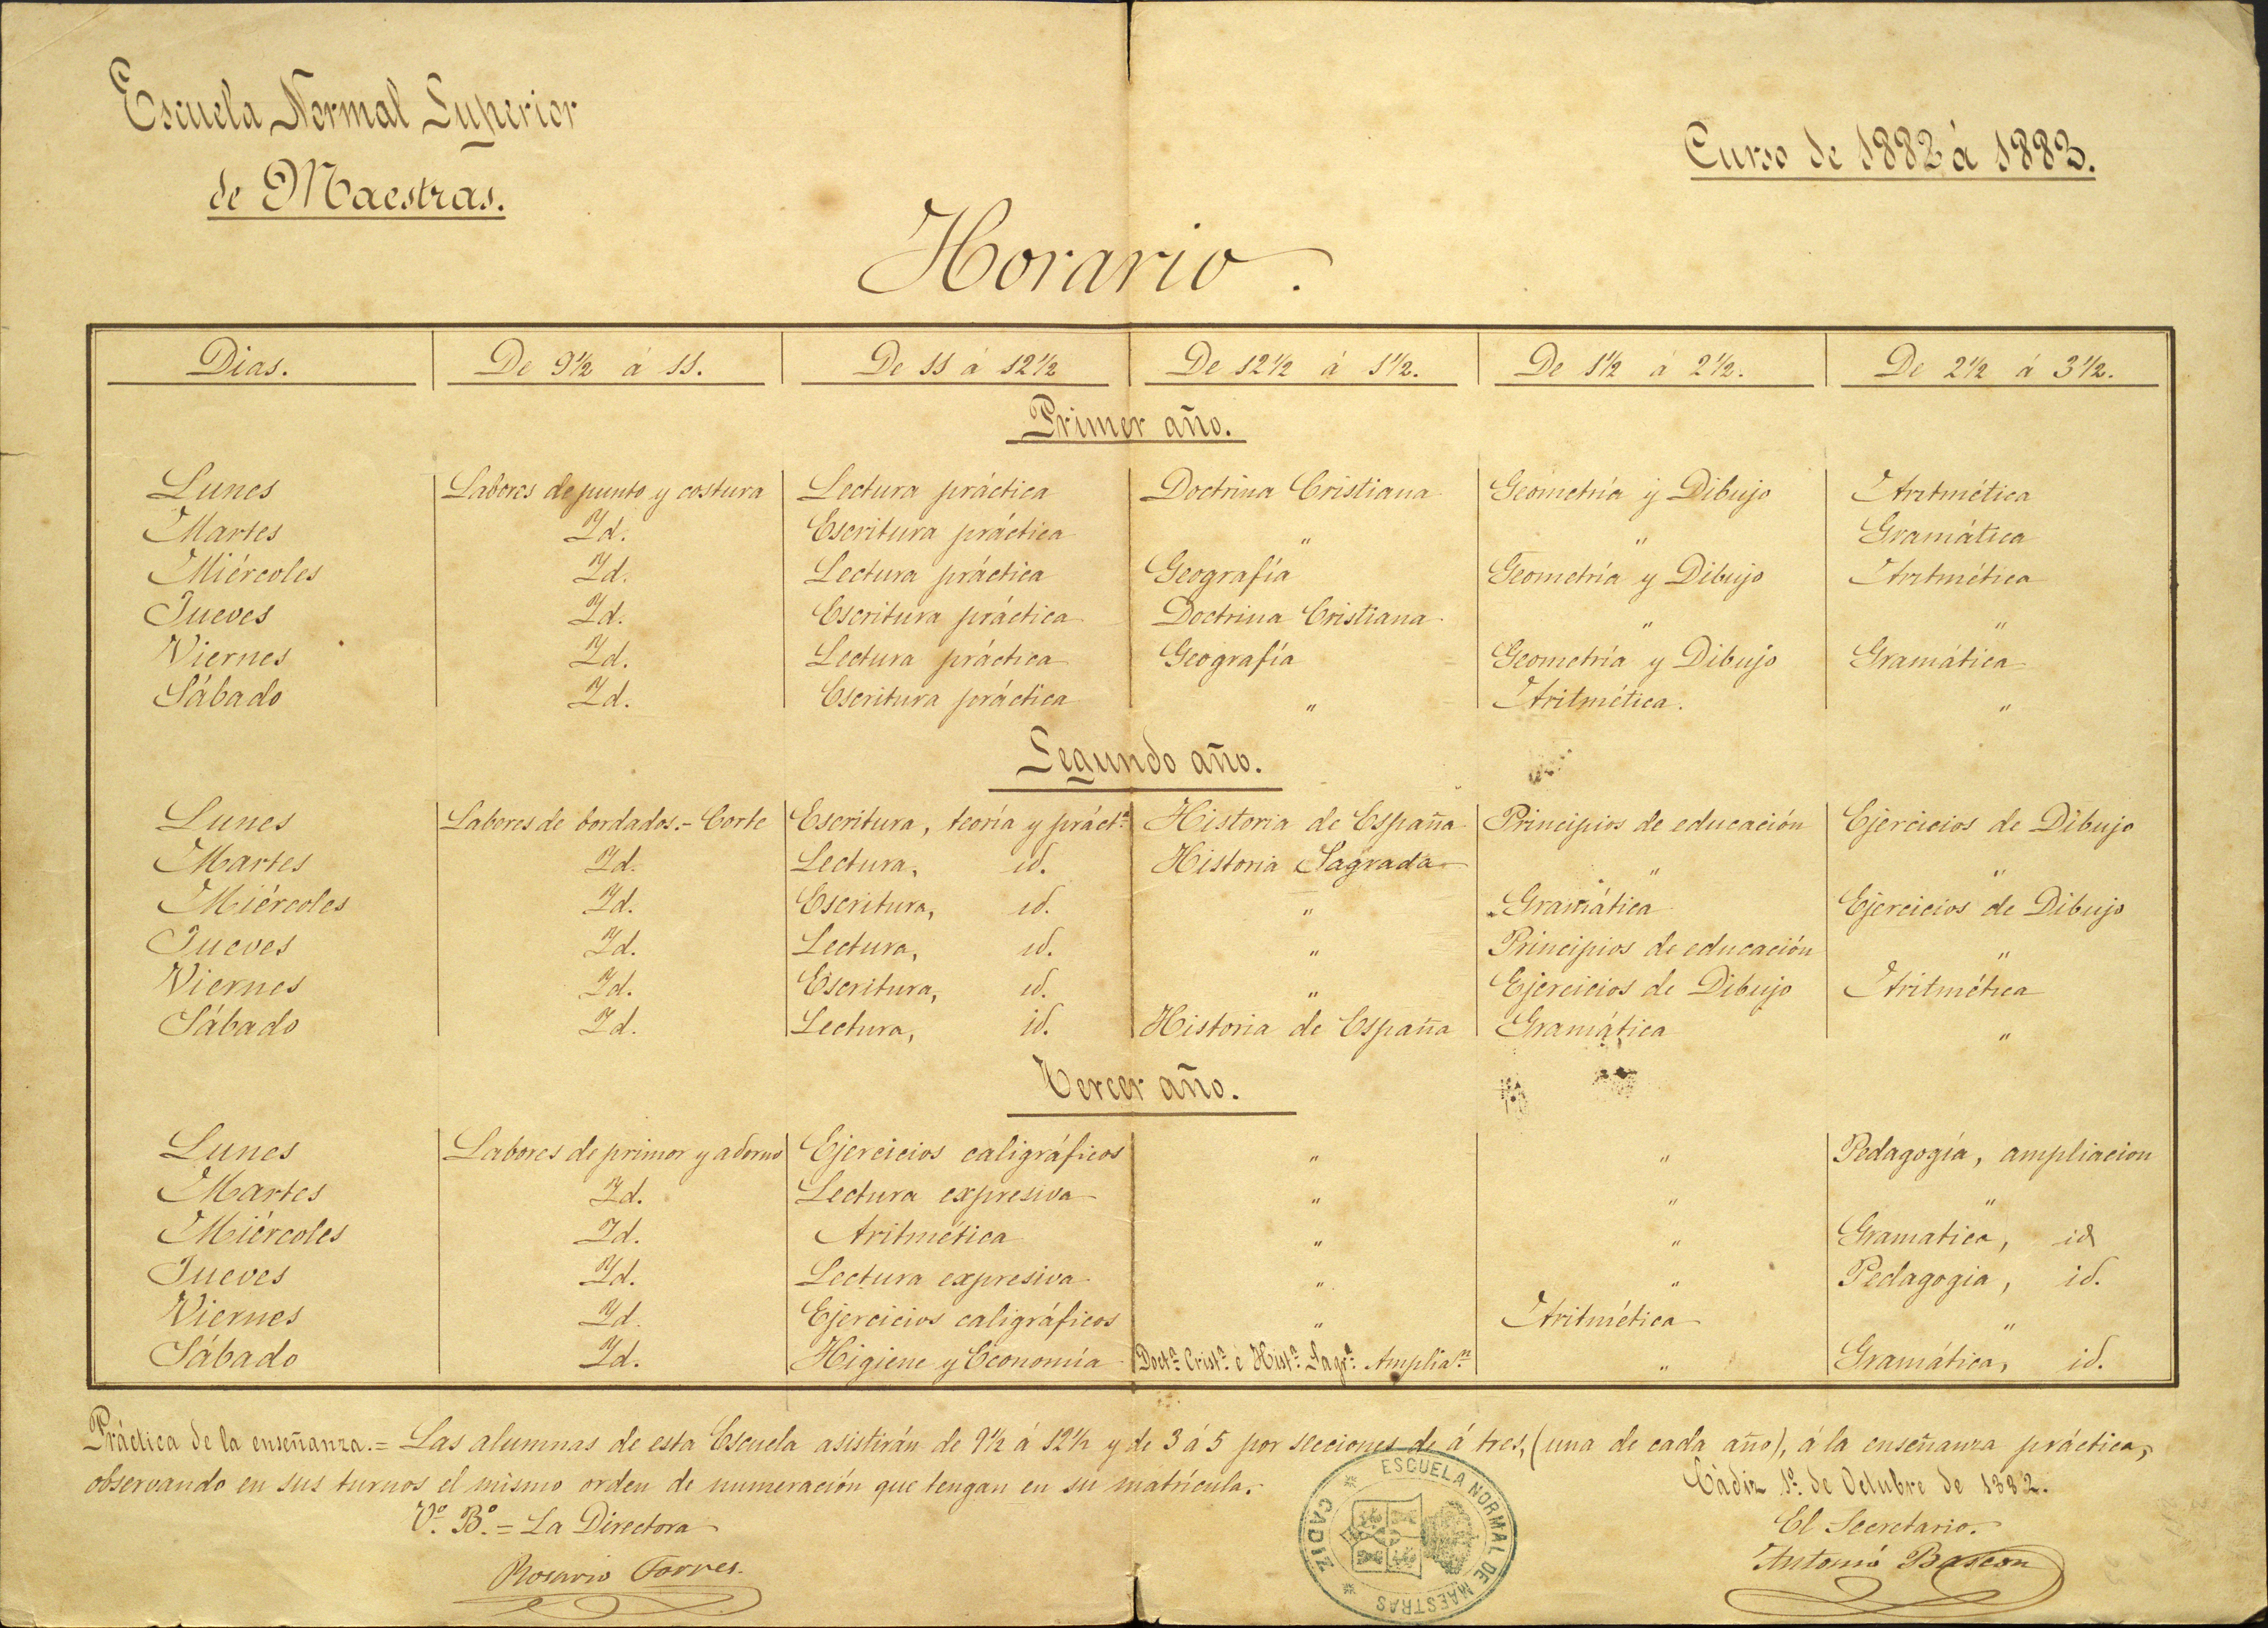 Escuela Normal Superior
de Maestras.
Curso de 1882 á 1883.
Horario.
Dias. De 9½ á 11. De 11 á 12½ De 12½ á 1½. De 1½ á 2½. De 2½ á 3½.
Primer año.
Lunes Labores de punto y costura Lectura práctica Doctrina Cristiana Geometría y Dibujo Aritmética
Martes Id. Escritura práctica " " Gramática
Miércoles Id. Lectura práctica Geografía Geometría y Dibujo Aritmética
Jueves Id. Escritura práctica Doctrina Cristiana " "
Viernes Id. Lectura práctica Geografía Geometría y Dibujo Gramática
Sábado Id. Escritura práctica " Aritmética. "
Segundo año.
Lunes Labores de bordados.- Corte Escritura, teoría y práctª Historia de España Principios de educación Ejercicios de Dibujo
Martes Id. Lectura, id. Historia Sagrada " "
Miércoles Id. Escritura, id. " Gramática Ejercicios de Dibujo
Jueves Id. Lectura, id. " Principios de educación "
Viernes Id. Escritura, id. " Ejercicios de Dibujo Aritmética
Sábado Id. Lectura, id. Historia de España Gramática "
Tercer año.
Lunes Labores de primor y adorno Ejercicios caligráficos " " Pedagogía, ampliacion
Martes Id. Lectura expresiva " " "
Miércoles Id. Aritmética " " Gramatica, id
Jueves Id. Lectura expresiva " " Pedagogia, id.
Viernes Id. Ejercicios caligráficos " Aritmética "
Sábado Id. Higiene y Economía Doctª Cristª é Histª Sagrª Ampliaⁿ " Gramática, id.
Práctica de la enseñanza.= Las alumnas de esta Escuela asistirán de 9½ á 12½ y de 3 á 5 por secciones de á tres, (una de cada año), á la enseñanza práctica,
observando en sus turnos el mismo orden de numeración que tengan en su matrícula.
Cádiz 1º de Octubre de 1882.
Vº Bº = La Directora
El Secretario.
Rosario Torres.
Antonio Bascon
ESCUELA NORMAL DE MAESTRAS
CADIZ